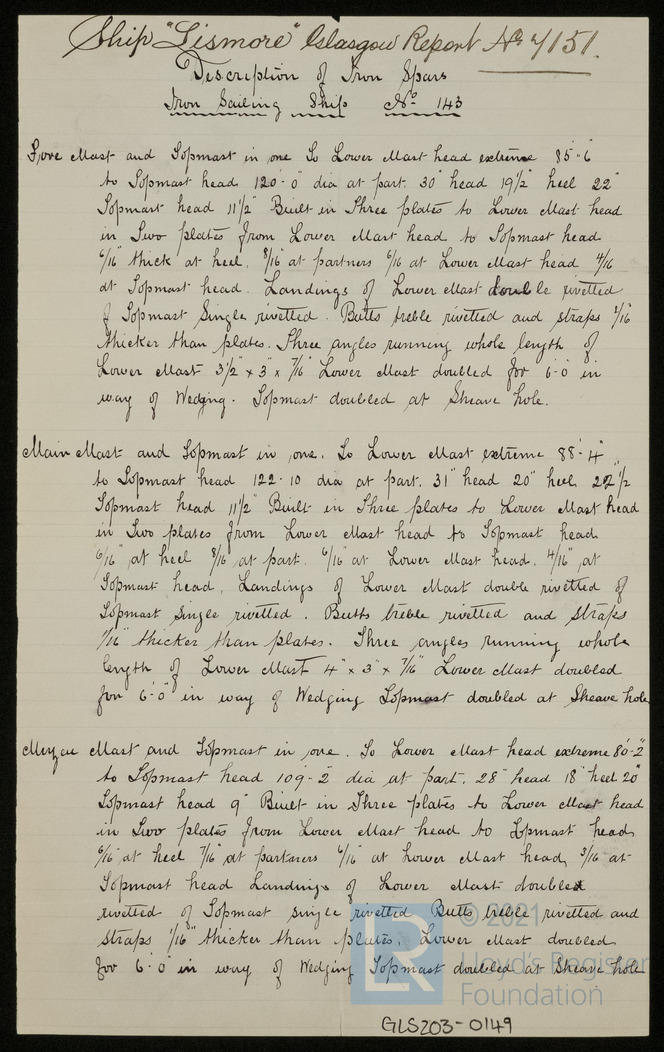 Ship "Lismore" Glasgow Report No 4/151.
Description of Iron Spars
Iron Sailing Ship No 143
Fore Mast and Topmast in one To Lower Mast head extreme 85'-6
to Topmast head 120'-0" dia at part. 30" head 19 1/2 heel 22"
Topmast head 11 1/2" Built in Three plates to Lower Mast head
in Two plates from Lower Mast head to Topmast head
6/16" thick at heel. 8/16 at partners 6/16 at Lower Mast head 4/16
at Topmast head. Landings of Lower Mast double rivetted
of Topmast Single rivetted. Butts treble rivetted and straps 1/16
thicker than plates. Three angles running whole length of
Lower Mast 3 1/2" x 3" x 7/16 Lower Mast doubled for 6'-0" in
way of Wedging. Topmast doubled at Sheave hole.
Main Mast and Topmast in one. To Lower Mast extreme 88'-4"
to Topmast head 122-10 dia at part. 31" head 20" heel 22 1/2
Topmast head 11 1/2" Built in Three plates to Lower Mast head
in Two plates from Lower Mast head to Topmast head
6/16" at heel 8/16 at part. 6/16" at Lower Mast head. 4/16" at
Topmast head. Landings of Lower Mast double rivetted of
Topmast single rivetted. Butts treble rivetted and straps
1/16" thicker than plates. Three angles running whole
length of Lower Mast 4" x 3" x 7/16" Lower Mast doubled
for 6'-0" in way of Wedging Topmast doubled at Sheave hole
Mizen Mast and Topmast in one. To Lower Mast head extreme 80'-2"
to Topmast head 109-2" dia at part. 28" head 18" heel 20"
Topmast head 9" Built in Three plates to Lower Mast head
in Two plates from Lower Mast head to Topmast head
6/16" at heel 7/16" at partners 6/16" at Lower Mast head, 3/16 at
Topmast head Landings of Lower Mast double
rivetted of Topmast single rivetted Butts treble rivetted and
straps 1/16" thicker than plates. Lower Mast doubled
for 6'-0" in way of Wedging Topmast doubled at Sheave hole
© 2021
Lloyd's Register
Foundation
GLS203-0149